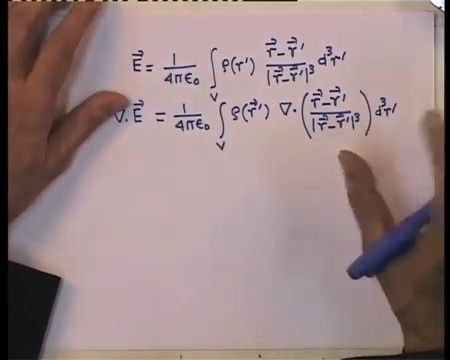 E⃗ = 1/4πε₀ ∫_V ρ(r') (r⃗ - r⃗')/|r⃗ - r⃗'|³ d³r'
∇. E⃗ = 1/4πε₀ ∫_V ρ(r⃗') ∇. ( (r⃗ - r⃗')/|r⃗ - r⃗'|³ ) d³r'